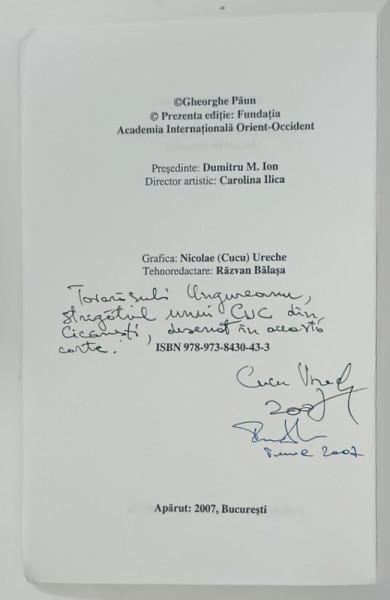 ©Gheorghe Păun
© Prezenta ediție: Fundația
Academia Internațională Orient-Occident
Președinte: Dumitru M. Ion
Director artistic: Carolina Ilica
Grafica: Nicolae (Cucu) Ureche
Tehnoredactare: Răzvan Bălașa
Tovarășului Ungureanu,
strigătul unui CUC din
Cicănești, desenat în această
carte!
ISBN 978-973-8430-43-3
Cucu Ureche
2007
Iunie 2007
Apărut: 2007, București